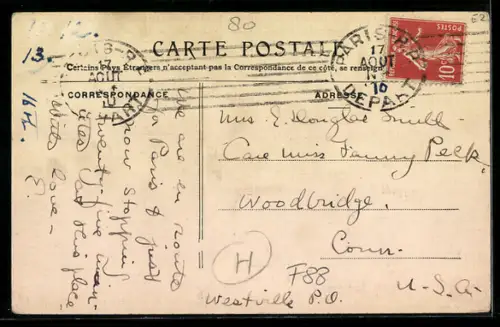 80
62
13.
16H.
CARTE POSTALE
Certains Pays Étrangers n'acceptant pas la Correspondance de ce côté, se renseigner
CORRESPONDANCE
ADRESSE
PARIS
17
AOUT
10
DEPART
17
AOUT
10
POSTES
10
We are en route
to Paris & just
now stopping
twenty-five min-
utes at this place
With love -
E.
Mrs E. Douglas Smith -
Care Miss Fanny Peck,
Woodbridge,
Conn.
U.S.A.
H
F88
Westville P.O.